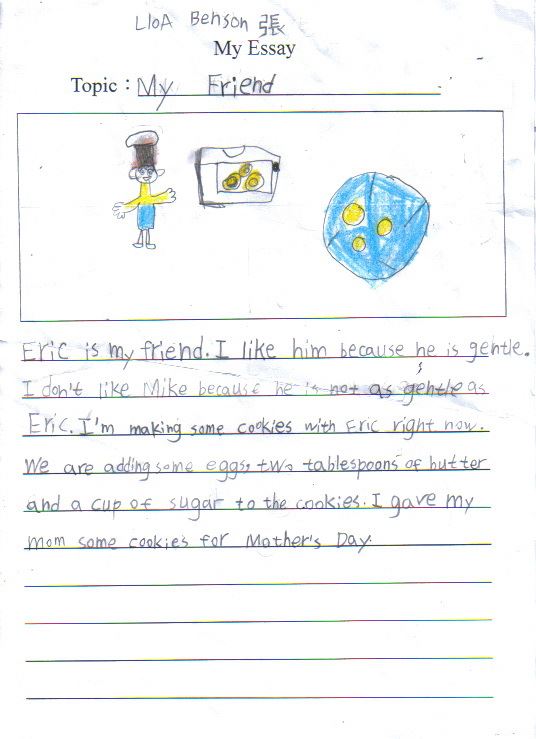 LloA Benson 張
My Essay
Topic : My Friend
Eric is my friend. I like him because he is gentle.
I don't like Mike because he is not as gentle as
Eric. I'm making some cookies with Eric right now.
We are adding some eggs, two tablespoons of butter
and a cup of sugar to the cookies. I gave my
mom some cookies for Mother's Day.